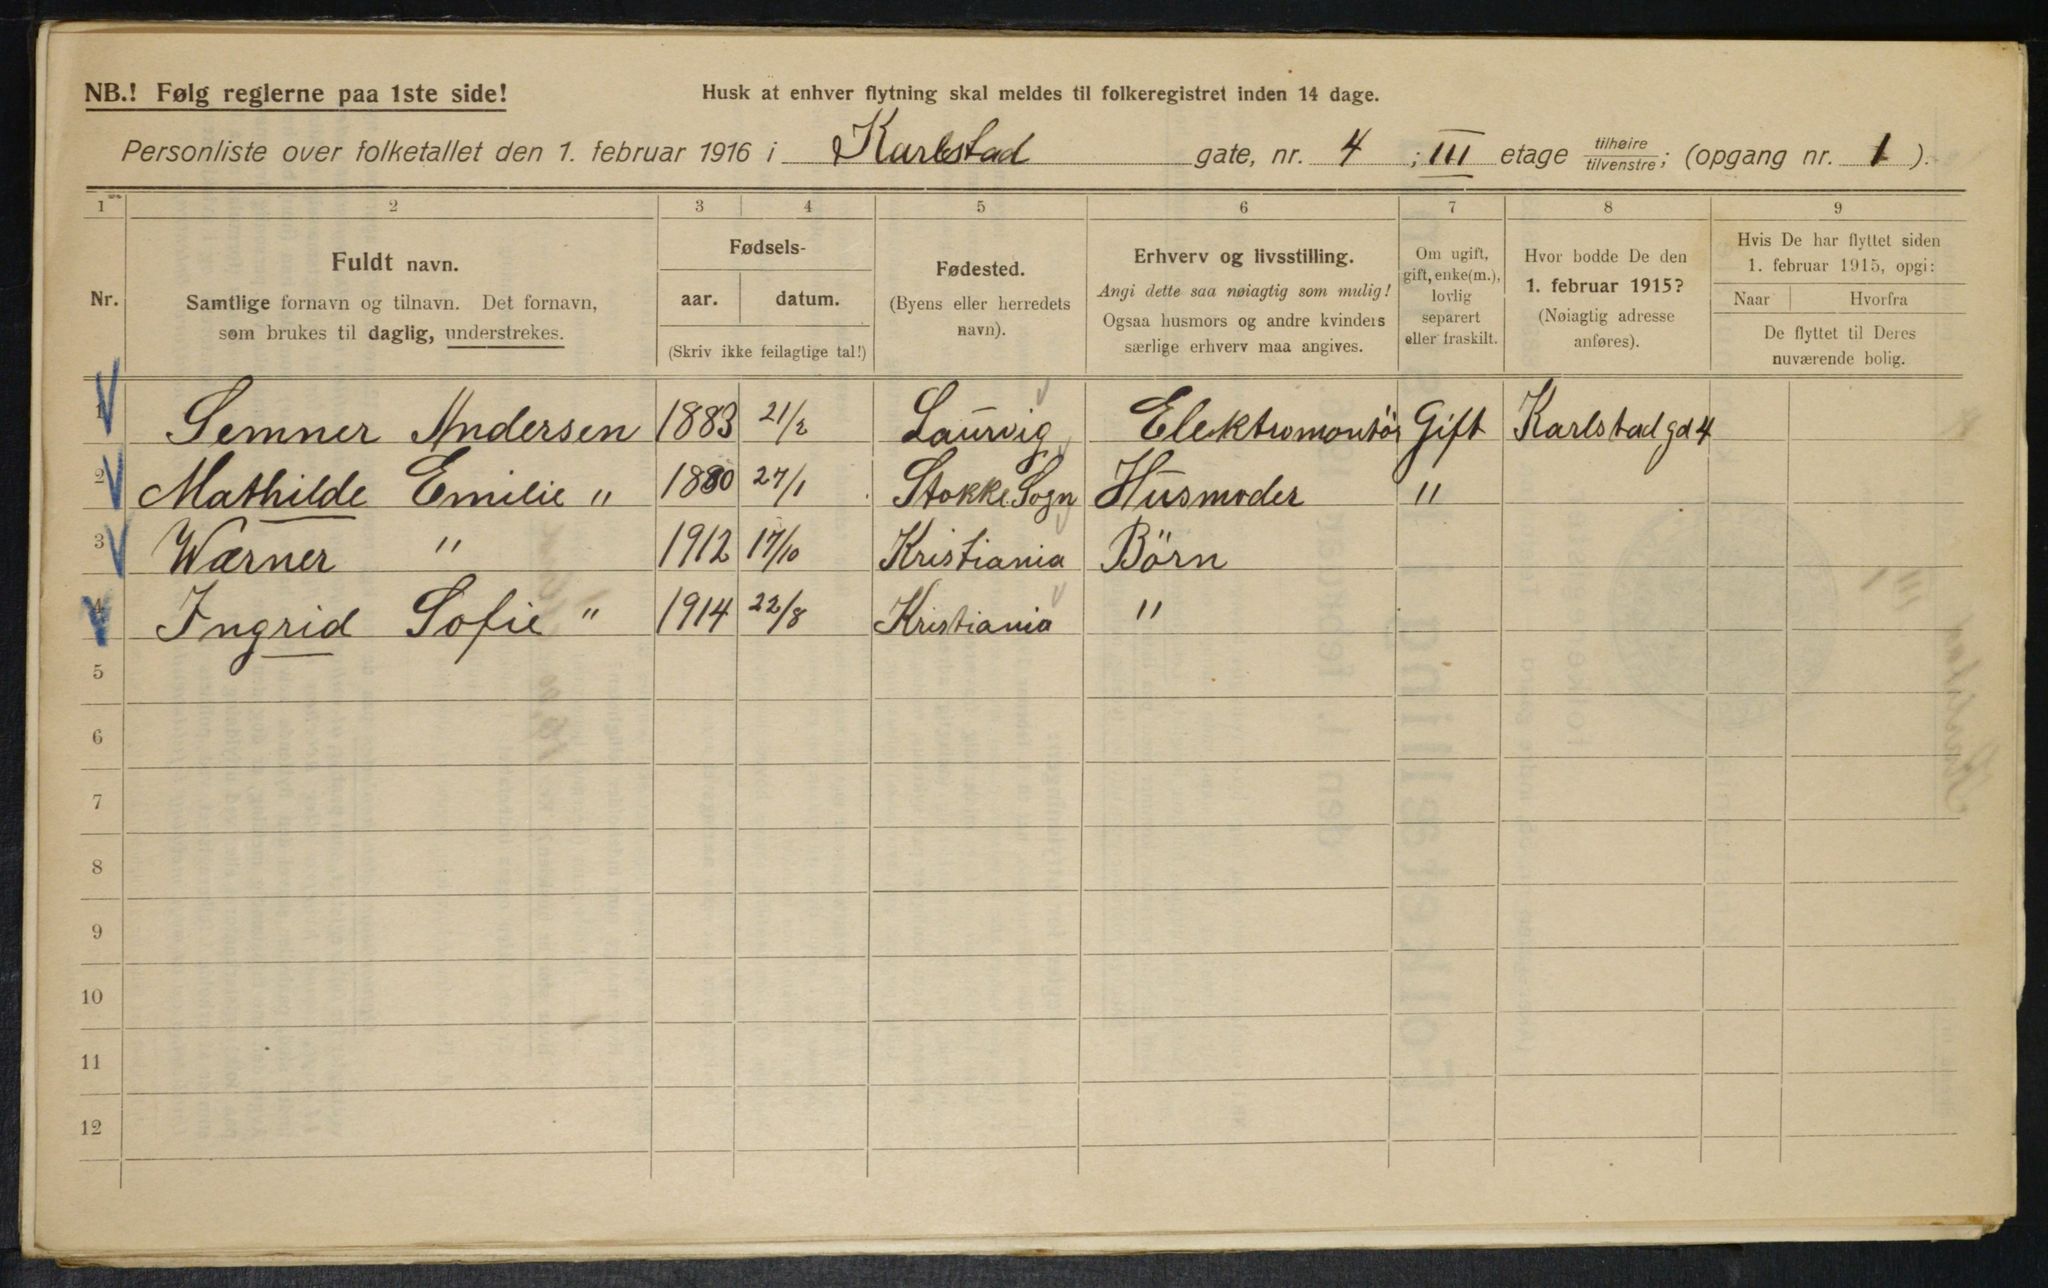 NB.! Følg reglerne paa 1ste side!
Husk at enhver flytning skal meldes til folkeregistret inden 14 dage.
Personliste over folketallet den 1. februar 1916 i Karlstad gate, nr. 4 ; III etage tilhøire/tilvenstre; (opgang nr. 1 ).
1 2 3 4 5 6 7 8 9
Nr.
Fuldt navn.
Samtlige fornavn og tilnavn. Det fornavn,
som brukes til daglig, understrekes.
Fødsels-
aar. datum.
(Skriv ikke feilagtige tal!)
Fødested.
(Byens eller herredets
navn).
Erhverv og livsstilling.
Angi dette saa nøiagtig som mulig!
Ogsaa husmors og andre kvinders
særlige erhverv maa angives.
Om ugift,
gift, enke(m.),
lovlig
separert
eller fraskilt.
Hvor bodde De den
1. februar 1915?
(Nøiagtig adresse
anføres).
Hvis De har flyttet siden
1. februar 1915, opgi:
Naar Hvorfra
De flyttet til Deres
nuværende bolig.
1 Semner Andersen 1883 21/2 Laurvig Elektromontör Gift Karlstad gd 4
2 Mathilde Emilie " 1880 27/1 Stokke Sogn Husmoder "
3 Wærner " 1912 17/10 Kristiania Börn
4 Ingrid Sofie " 1914 22/8 Kristiania "
5
6
7
8
9
10
11
12